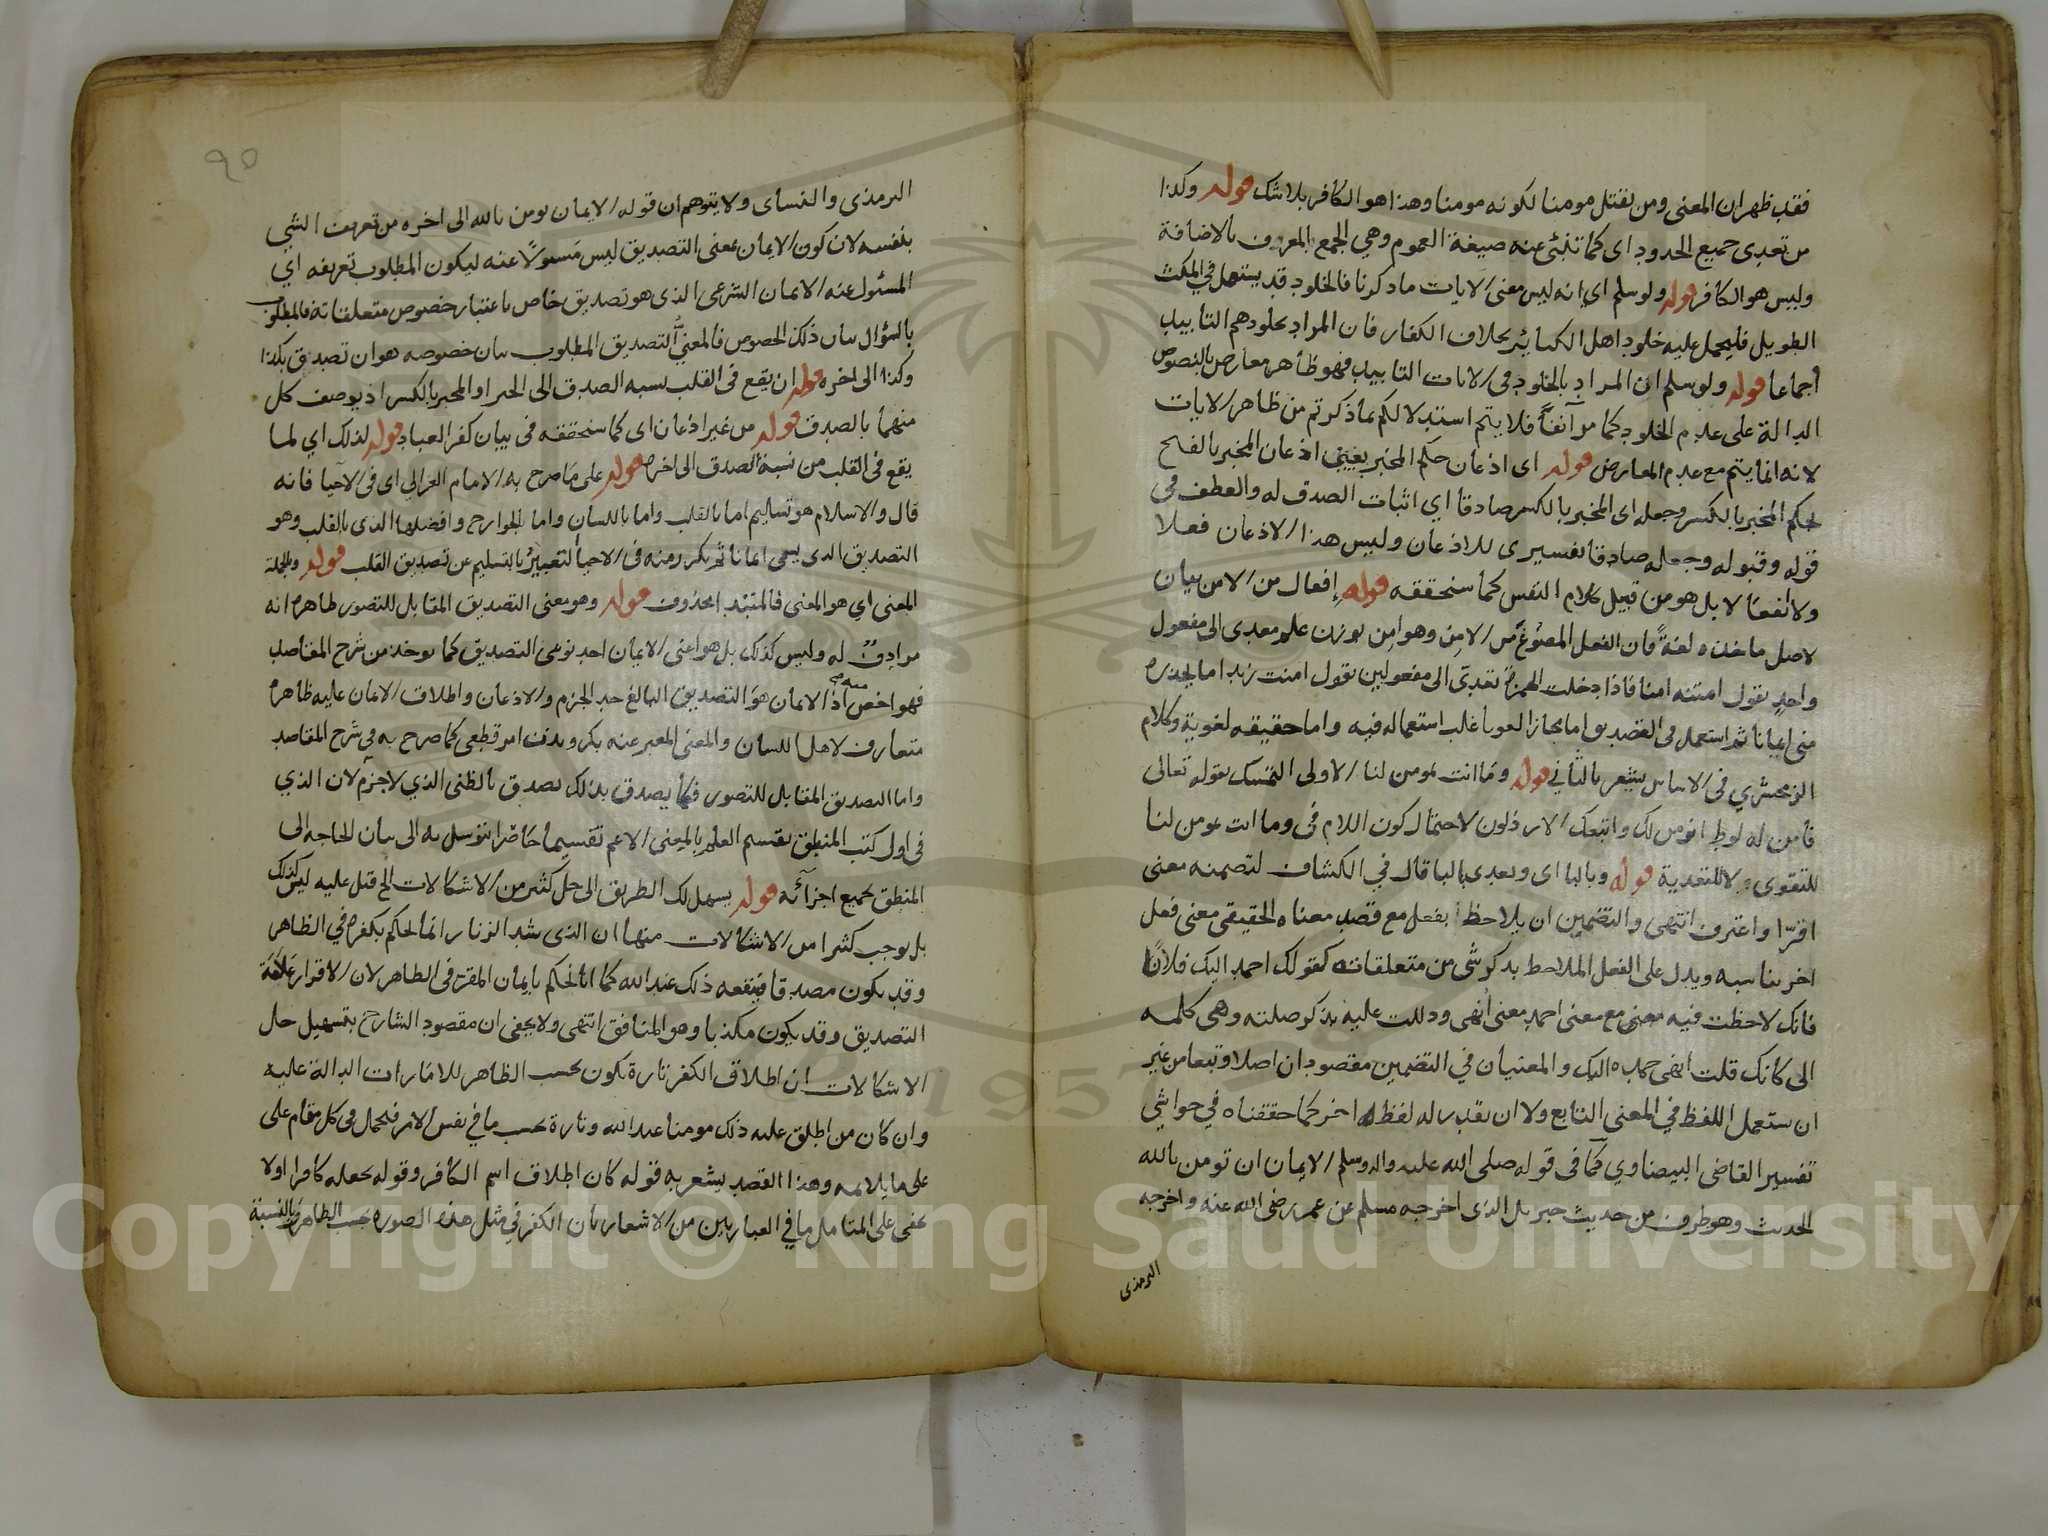 فقد ظهر ان المعنى ومن يقتل مومنا لكونه مومنا وهذا هو الكافر بلا شك قوله وكذا
من تعدى جميع الحدود اى كما تنبئ عنه صيغة العموم وهي الجمع المعرف بالاضافة
وليس هو الكافر قوله ولو سلم اي انه ليس معنى الايات ما ذكرنا فالخلود قد يستعمل في المكث
الطويل فليحمل عليه خلود اهل الكبائر بخلاف الكفار فان المراد بخلودهم التابيد
اجماعا قوله ولو سلم ان المراد بالخلود في الايات التابيد فهو ظاهر معارض بالنصوص
الدالة على عدم الخلود كما مر آنفًا فلا يتم استدلالكم بما ذكرتم من ظاهر الايات
لانه انما يتم مع عدم المعارض قوله اى اذعان حكم المخبر يعني اذعان المخبر بالفتح
لحكم المخبر بالكسر وجعله اى المخبر بالكسر صادقا اي اثبات الصدق له والعطف في
قوله وقبوله وجعله صادقا تفسيرى للاذعان وليس هذا الاذعان فعلا
ولا انفعالا بل هو من قبيل كلام النفس كما سنحققه قوله إفعال من الامن بيان
لاصل ماخذه لغةً فان الفعل المصوغ من الامن وهو امن بوزن علم معدى الى مفعول
واحد تقول امنته امنا فاذا دخلت الهمزة تعدى الى مفعولين تقول امنت زيدا ما يحذره
منى ايمانا ثم استعمل في التصديق اما مجازا لغويا غلب استعماله فيه واما حقيقه لغوية وكلام
الزمخشري في الاساس يشعر بالثاني قوله وما انت بمومن لنا الاولى التمسك بقوله تعالى
فامن له لوط انومن لك واتبعك الارذلون لاحتمال كون اللام في وما انت بمومن لنا
للتقوى ولا للتعدية قوله وبالبا اى ويعدى بالبا قال في الكشاف لتضمنه معنى
اقرّ واعترف انتهى والتضمين ان يلاحظ بفعل مع قصد معناه الحقيقى معنى فعل
اخر يناسبه ويدل على الفعل الملاحظ بذكر شى من متعلقاته كقولك احمد اليك فلانًا
فانك لاحظت فيه مع معنى احمد معنى انهى ودللت عليه بذكر صلته وهي كلمه
الى كانك قلت انهى حمده اليك والمعنيان في التضمين مقصودان اصلا وتبعا من غير
ان يستعمل اللفظ في المعنى التابع ولا ان يقدر له لفظ اخر كما حققناه في حواشي
تفسير القاضى البيضاوي كما فى قوله صلى الله عليه واله وسلم الايمان ان تومن بالله
الحديث وهو طرف من حديث جبريل الذى اخرجه مسلم عن عمر رضي الله عنه واخرجه
الترمذى
٩٥
الترمذى والنساى ولا يتوهم ان قوله الايمان ان تومن بالله الى اخره من تعريف الشي
بنفسه لان كون الايمان بمعنى التصديق ليس مسولًا عنه ليكون المطلوب تعريفه اي
المسئول عنه الايمان الشرعى الذى هو تصديق خاص باعتبار خصوص متعلقاته فالمطلوب
بالسؤال بيان ذلك الخصوص فالمعنى التصديق المطلوب بيان خصوصه هو ان تصدق بكذا
وكذا الى اخره قوله ان يقع فى القلب نسبه الصدق الى الخبر او المخبر بالكسر اذ يوصف كل
منهما بالصدق قوله من غير اذعان اى كما سنحققه في بيان كفر العباد قوله لذلك اي لما
يقع فى القلب من نسبة الصدق الى اخره قوله على ما صرح به الامام الغزالي اى فى الاحيا فانه
قال والاسلام هو تسليم اما بالقلب واما باللسان واما بالجوارح وافضلها الذى بالقلب وهو
التصديق الذى يسمى ايمانا ثم تكرر منه فى الاحيا التعبير بالتسليم عن تصديق القلب قوله وبالجملة
المعنى اي هو المعنى فالمبتدا محذوف قوله وهو معنى التصديق المقابل للتصور ظاهره انه
مرادف له وليس كذلك بل هو اعنى الايمان احد نوعى التصديق كما يوخذ من شرح المقاصد
فهو اخص منه اذ الايمان هو التصديق البالغ حد الجزم والاذعان واطلاق الايمان عليه ظاهره
متعارف لاهل اللسان والمعنى المعبر عنه بكرويدن امر قطعى كما صرح به في شرح المقاصد
واما التصديق المقابل للتصور فكما يصدق بذلك يصدق بالظنى الذي لا جزم لان الذي
في اول كتب المنطق تقسيم العلم بالمعنى الاعم تقسيما حاصرا يتوسل به الى بيان الحاجه الى
المنطق بجميع اجزائه قوله يسهل لك الطريق الى حل كثير من الاشكالات الخ قيل عليه ليس كذلك
بل يوجب كثيرا من الاشكالات منها ان الذى شد الزنار انما الحكم بكفره في الظاهر
وقد يكون مصدقا فينفعه ذلك عند الله كما انا نحكم بايمان المقر فى الظاهر لان الاقرار علامة
التصديق وقد يكون مكذبا وهو المنافق انتهى ولا يخفى ان مقصود الشارح بتسهيل حل
الاشكالات ان اطلاق الكفر تارة يكون بحسب الظاهر للامارات الدالة عليه
وان كان من اطلق عليه ذلك مومنا عند الله وتارة بحسب ما في نفس الامر فيحمل في كل مقام على
على ما يلائمه وهذا القصد يشعر به قوله كان اطلاق اسم الكافر وقوله بجعله كافرا ولا
يخفى على المتامل ما في العبارتين من الاشعار بان الكفر في مثل هذه الصوره بحسب الظاهر بالنسبة
Copyright © King Saud University
1957